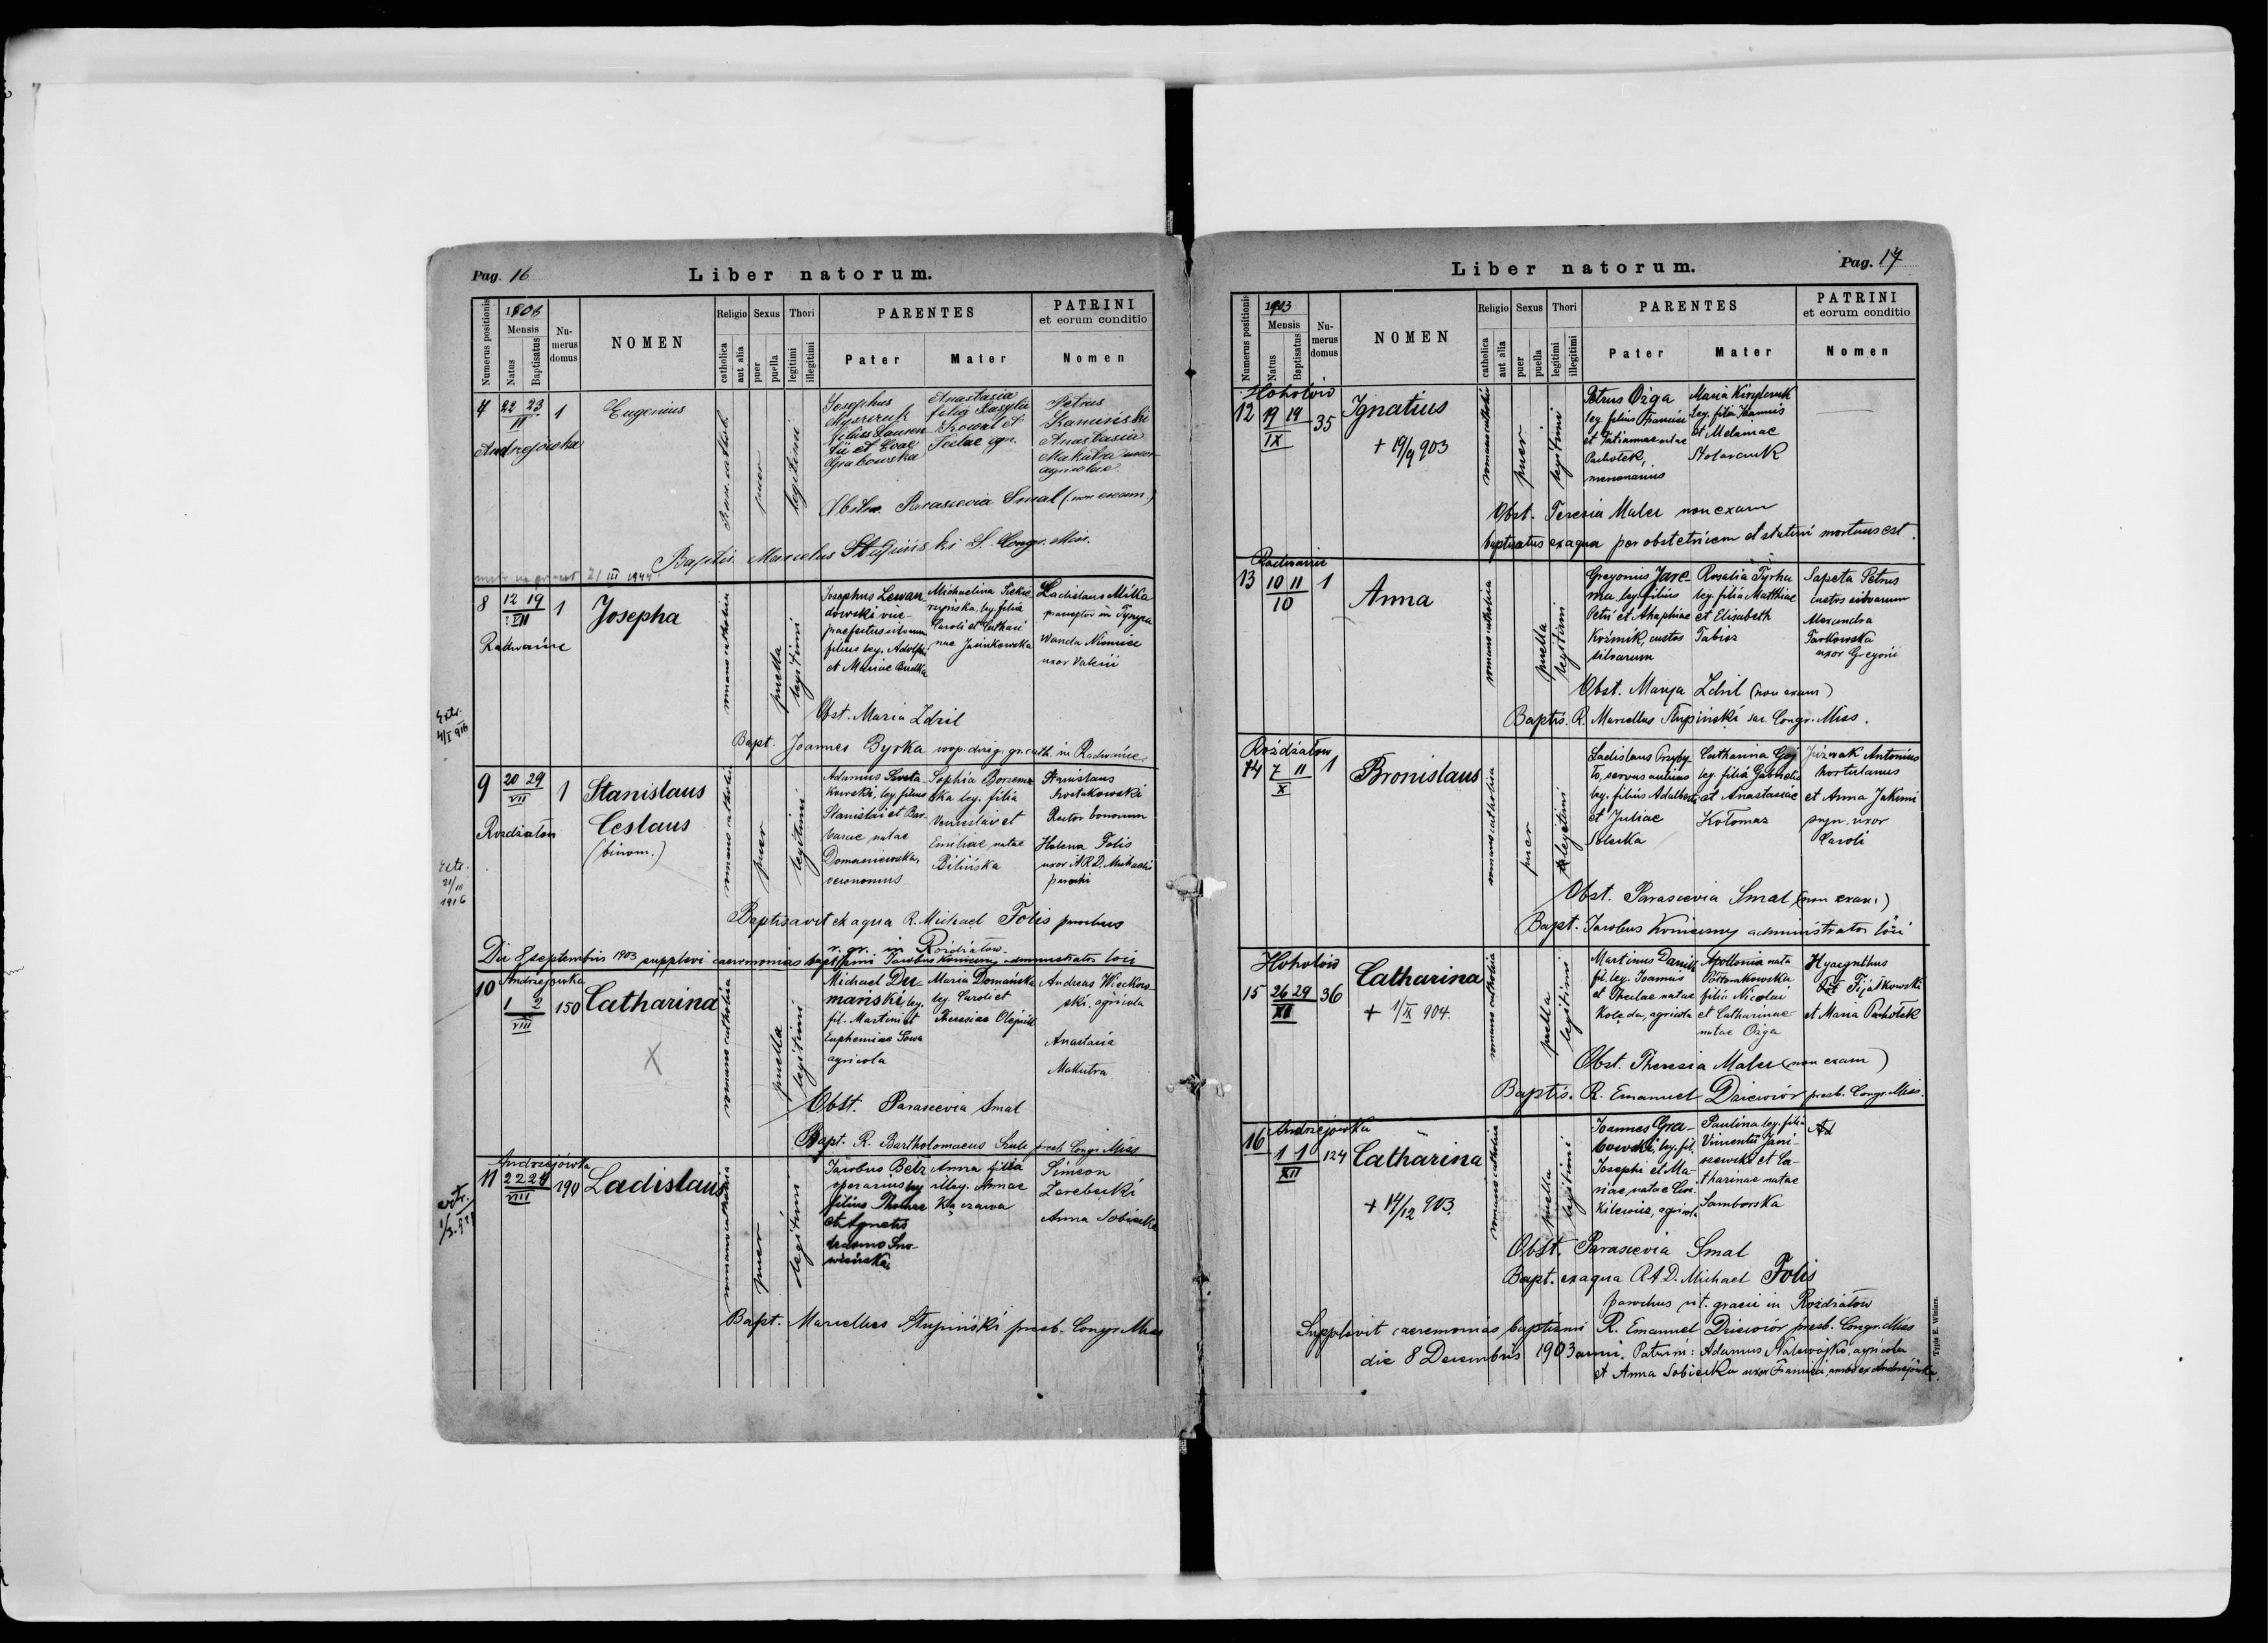 Pag. 16
Liber natorum.
Numerus positionis
1903
Mensis
Natus
Baptisatus
Nu-
merus
domus
NOMEN
Religio
catholica
aut alia
Sexus
puer
puella
Thori
legitimi
illegitimi
PARENTES
Pater
Mater
PATRINI
et eorum conditio
Nomen
22 23
1
Eugenius
Josephus
Anastasia
Petrus
filia
Kamiński
et Evae
Anastasia
Grabowska
Makutra
agricolae
puer
legitimi
Andrzejówka
Obstr. Parascevia Smal (non exam.)
Baptis. Marcelus Stupiński S. Congr. Miss.
21 III 1944
8
12 19
VII
1
Radwańce
Josepha
romano catholica
puella
legitimi
Josephus Lewan-
dowski vice-
praefectus silvarum
filius leg. Adolphi
et Mariae Budka
Michaelina
leg. filia
Caroli et Cathari
nae Jasinkowska
Ladislaus Milka
Wanda
uxor Valerii
Obst. Maria Zdril
Bapt. Joannes Byrka coop. dirig. gr. cath. in Radwańce
Extr.
4/I 916
9
20 29
VII
1
Rozdziałów
Stanislaus
Ceslaus
(binom.)
romano catholica
puer
legitimi
Adamus
leg. filius
Stanislai et Bar-
barae natae
Domaniewska,
oeconomus
Sophia
leg. filia
et
Emiliae natae
Bilińska
Stanislaus
Rector bonorum
Helena Folis
uxor A.R.D. Michaelis
parochi
Baptisavit ex aqua R. Michael Folis parochus
r. gr. in Rozdziałow
Die 8 septembris 1903 supplevi caeremonias baptismi Jacobus Konieczny administrator loci
Extr.
21/III
1916
Andrzejówka
10
1 2
VIII
150
Catharina
X
romano catholica
puella
legitimi
Michael Du-
mański leg.
fil. Martini et
Euphemiae Sowa
agricola
Maria Domańska
leg. Caroli et
Theresiae
Andreas Więckow-
ski, agricola
Anastasia
Makutra
Obst. Parascevia Smal
Bapt. R. Bartholomaeus Szulc presb. Congr. Miss
Andrzejówka
11
22 24
VIII
190
Ladislaus
romano catholica
puer
legitimi
Jacobus Betz
operarius leg
filius Thomae
et Agnetis
Anna filia
illeg. Annae
Simeon
Zarębecki
Anna Sobiecka
Bapt. Marcellus Stupiński presb. Congr. Miss
extr.
Pag. 17
Liber natorum.
Numerus positionis
1903
Mensis
Natus
Baptisatus
Nu-
merus
domus
NOMEN
Religio
catholica
aut alia
Sexus
puer
puella
Thori
legitimi
illegitimi
PARENTES
Pater
Mater
PATRINI
et eorum conditio
Nomen
Hohołów
12
19 19
IX
35
Ignatius
+ 19/9 903
romano catholica
puer
legitimi
Petrus Ożga
leg. filius Francisci
et Tatiannae natae
Pachołek,
mercenarius
Maria
leg. filia Joannis
et Melaniae
Stolarczuk
Obst. Teresia Maler non exam
baptisatus ex aqua per obstetricem et statim mortuus est.
Radwańce
13
10 11
10
1
Anna
romano catholica
puella
legitimi
Gregorius Jare-
ma leg. filius
Petri et Ahaphiae
Koźmik, custos
silvarum
Rosalia Tyrka
leg. filia Matthiae
et Elisabeth
Tabisz
Sapeta Petrus
custos silvarum
Alexandra
Tarkowska
uxor Gregorii
Obst. Marya Zdril (non exam)
Baptis. R. Marcellus Stupiński sac. Congr. Miss.
Rozdziałow
14
7 11
X
1
Bronislaus
romano catholica
puer
legitimi
Ladislaus Przyby-
ło, servus aulicus
leg. filius Adalberti
et Juliae
Soleska
Catharina Gój
leg. filia Gabrielis
et Anastasiae
Kołomaz
Józwak Antonius
hortulanus
et Anna Jakimi
szyn uxor
Caroli
Obst. Parascevia Smal (non exam)
Bapt. Jacobus Konieczny administrator loci
Hohołów
15
26 29
XI
36
Catharina
+ 1/IX 904.
romano catholica
puella
legitimi
Martinus Daniłk
fil. leg. Joannis
et Theclae natae
Kolęda, agricola
Apollonia nata
filia Nicolai
et Catharinae
natae Ożga
Hyacynthus
Fijałkowski
et Maria Pachołek
Obst. Theresia Maler (non exam)
Baptis. R. Emanuel Dziewiór presb. Congr. Miss.
Andrzejówka
16
1 1
XII
124
Catharina
+ 14/12 903.
romano catholica
puella
legitimi
Joannes Gra-
bowski, leg. fil.
Josephi et Ma-
riae, natae
agricola
Paulina leg. filia
Vincentii Jani-
szewski et Ca-
tharinae natae
Samborska
Ad
Obst. Parascevia Smal
Bapt. ex aqua R.A.D. Michael Folis
parochus rit. graeci in Rozdziałow
Supplevit caeremonias baptismi R. Emanuel Dziewiór presb. Congr. Miss
die 8 Decembris 1903 anni. Patrini: Adamus Nalewajko, agricola
et Anna Sobiecka uxor Francisci, ambo ex Andrzejówka.
Typis E. Winiarz.